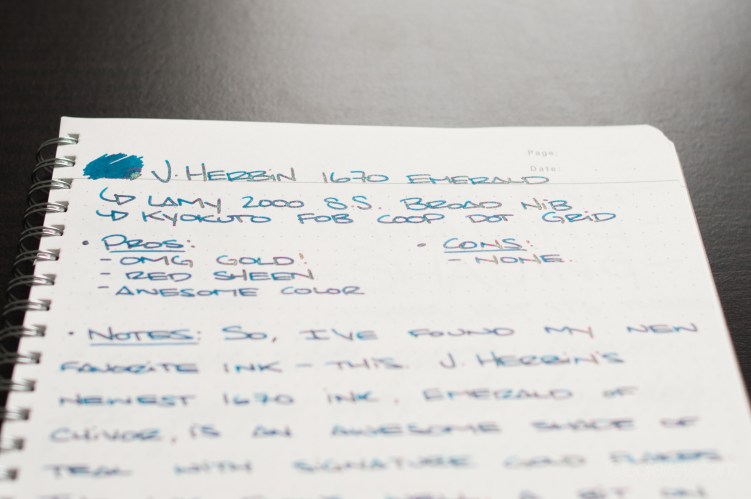 Page:
Date:
J. HERBIN 1670 EMERALD
↳ LAMY 2000 S.S. BROAD NIB
↳ KYOKUTO FOB COOP DOT GRID
• PROS:
- OMG GOLD!
- RED SHEEN
- AWESOME COLOR
• CONS:
- NONE.
• NOTES: SO, I'VE FOUND MY NEW
FAVORITE INK - THIS. J. HERBIN'S
NEWEST 1670 INK, EMERALD OF
CHIVOR, IS AN AWESOME SHADE OF
TEAL WITH SIGNATURE GOLD FLAKES